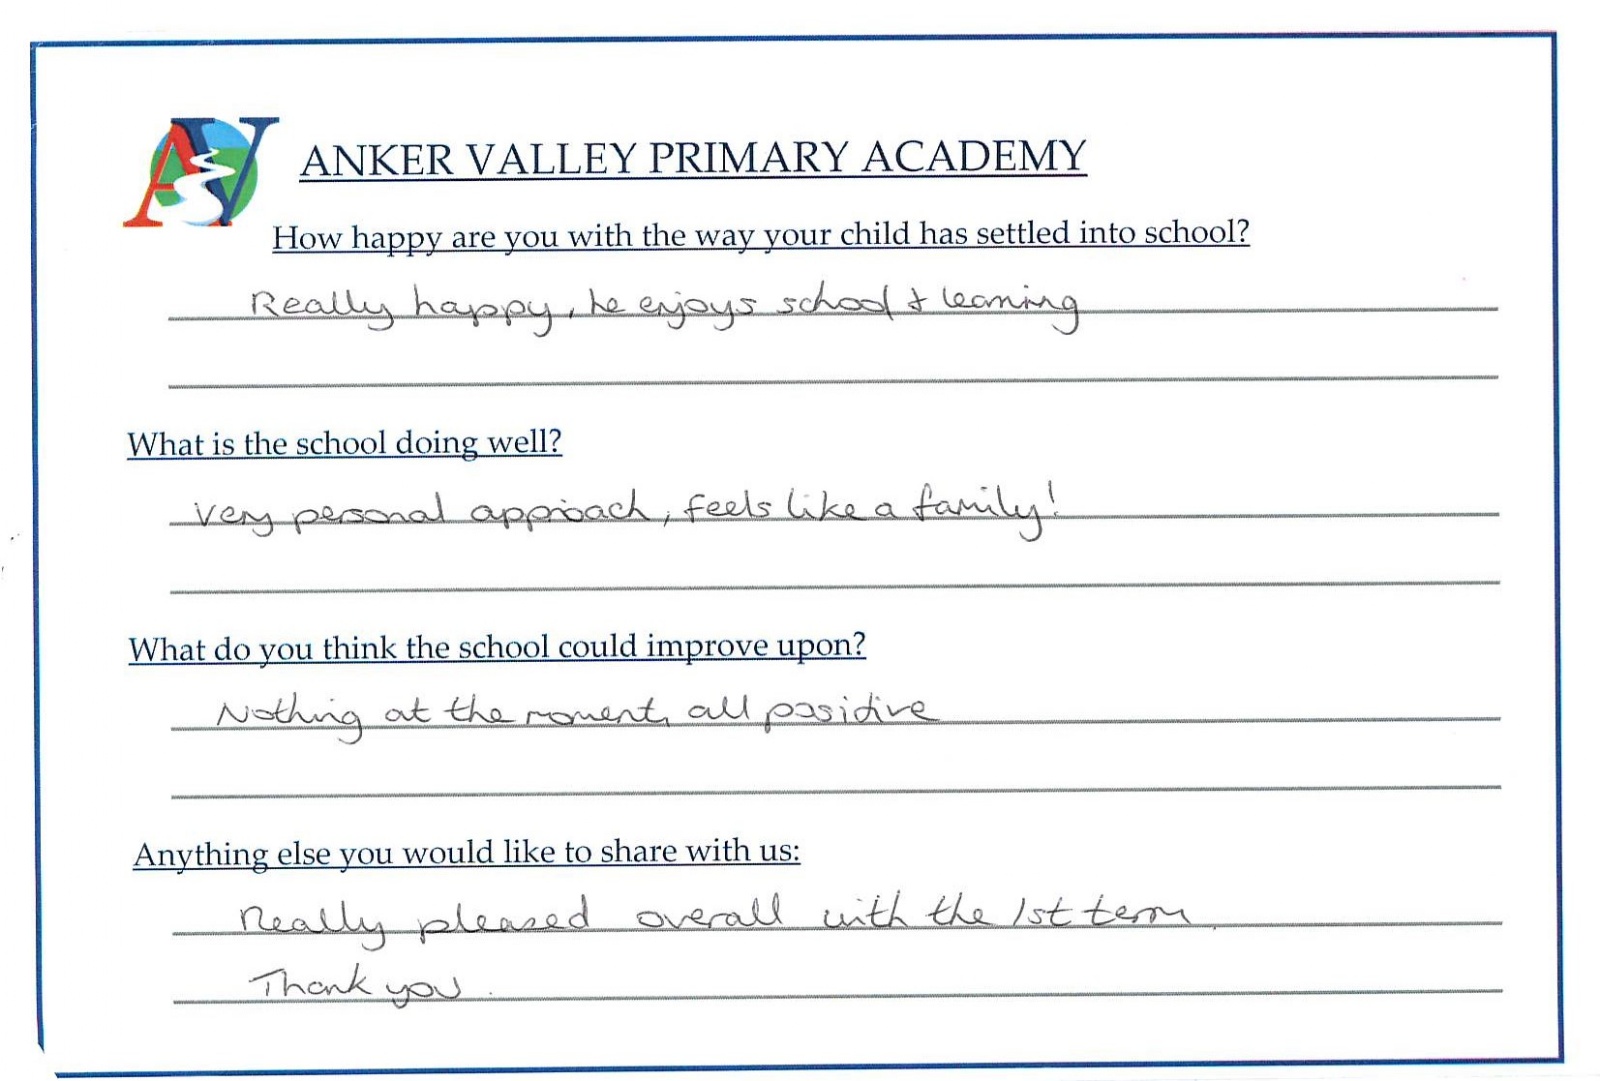 AV
ANKER VALLEY PRIMARY ACADEMY
How happy are you with the way your child has settled into school?
Really happy, he enjoys school & learning
What is the school doing well?
Very personal approach, feels like a family!
What do you think the school could improve upon?
Nothing at the moment, all positive
Anything else you would like to share with us:
Really pleased overall with the 1st term.
Thank you.